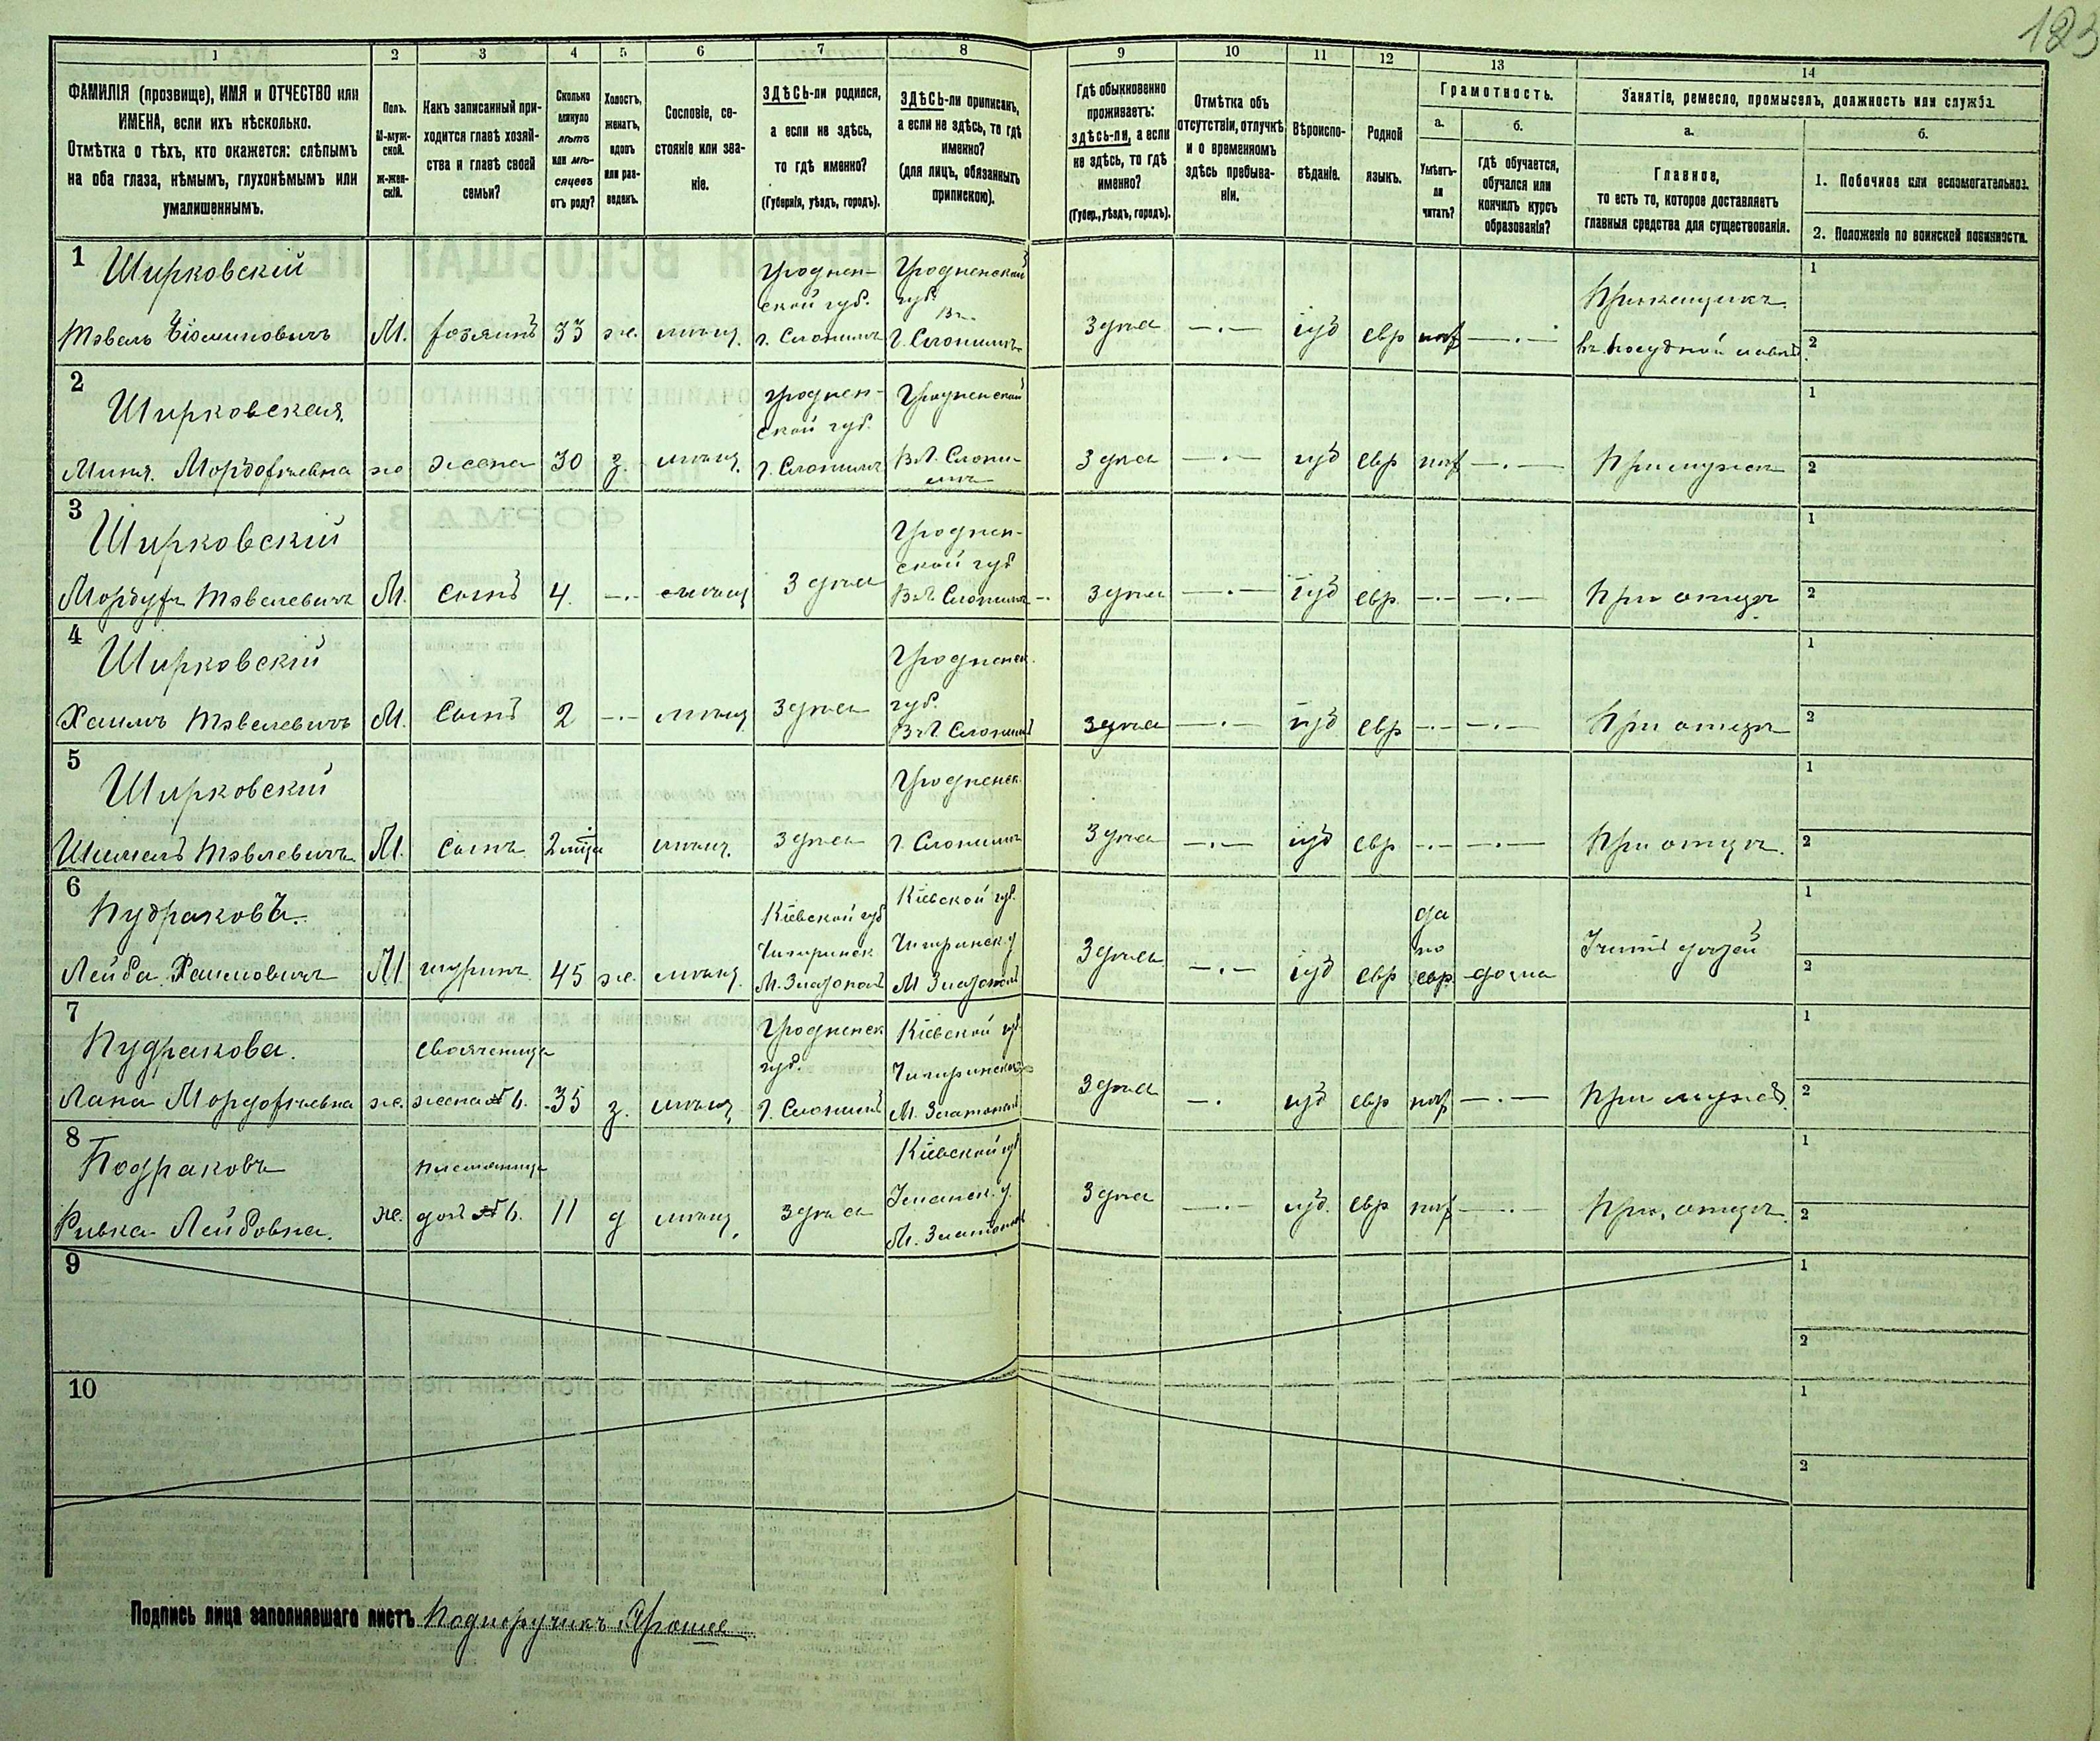 183
1 2 3 4 5 6 7 8 9 10 11 12 13 14
ФАМИЛІЯ (прозвище), ИМЯ и ОТЧЕСТВО или
ИМЕНА, если ихъ нѣсколько.
Отмѣтка о тѣхъ, кто окажется: слѣпымъ
на оба глаза, нѣмымъ, глухонѣмымъ или
умалишеннымъ.
Полъ.
М-муж-
ской.
Ж-жен-
скій.
Какъ записанный при-
ходится главѣ хозяй-
ства и главѣ своей
семьи?
Сколько
минуло
лѣтъ
или мѣ-
сяцевъ
отъ роду?
Холостъ,
женатъ,
вдовъ
или раз-
веденъ.
Сословіе, со-
стояніе или зва-
ніе.
ЗДѢСЬ-ли родился,
а если не здѣсь,
то гдѣ именно?
(Губернія, уѣздъ, городъ).
ЗДѢСЬ-ли приписанъ,
а если не здѣсь, то гдѣ
именно?
(для лицъ, обязанныхъ
припискою).
Гдѣ обыкновенно
проживаетъ:
здѣсь-ли, а если
не здѣсь, то гдѣ
именно?
(Губер., уѣздъ, городъ).
Отмѣтка объ
отсутствіи, отлучкѣ
и о временномъ
здѣсь пребыва-
ніи.
Вѣроиспо-
вѣданіе.
Родной
языкъ.
Грамотность.
а.
Умѣетъ-
ли
читать?
б.
Гдѣ обучается,
обучался или
кончилъ курсъ
образованія?
Занятіе, ремесло, промыселъ, должность или служба.
а.
Главное,
то есть то, которое доставляетъ
главныя средства для существованія.
б.
1. Побочное или вспомогательное.
2. Положеніе по воинской повинности.
1 Ширковскій Гроднен- Гродненской 1
ской губ. губ. Прикащикъ
Тэвель М. хозяинъ 33 ж. мѣщ. г. Слонимъ г. Слонимъ Здѣсь —.— іуд евр —.— въ посудной лавкѣ 2
2 Ширковская Гроднен- Гродненской 1
ской губ.
Миня Мордоховна ж жена 30 з. мѣщ. г. Слонимъ В г. Слони- Здѣсь —.— іуд евр —.— При мужѣ 2
мъ
3 Ширковскій Гроднен- 1
ской губ
Мордухъ Тэвелевичъ М. Сынъ 4. —.— мѣщ Здѣсь В г. Слонимъ Здѣсь —.— іуд евр. —.— —.— При отцѣ 2
4 Ширковскій Гродненск. 1
губ.
Хаимъ Тэвелевичъ М. Сынъ 2 —.— мѣщ Здѣсь В г. Слонимъ Здѣсь —.— іуд евр —.— —.— При отцѣ 2
5 Ширковскій Гродненск. 1
Тэвелевичъ М. Сынъ 2 мѣщ. Здѣсь г. Слонимъ Здѣсь —.— іуд евр —.— —.— При отцѣ. 2
6 Пудраковъ. Кіевской губ Кіевской губ. да 1
Чигиринск Чигиринск. у по
Лейба Хаимовичъ М шуринъ 45 ж. мѣщ. М. Златополь М Златополь Здѣсь —.— іуд евр евр. дома дѣтей 2
7 Пудракова. Свояченица Гродненск Кіевской губ. 1
губ. Чигиринск
Лана Мордоховна ж. жена № 6. 35 з. мѣщ. г. Слонимъ М. Златополь Здѣсь —. іуд евр —.— При мужѣ. 2
8 Подраковъ племянница Кіевской губ 1
Ривка Лейбовна. ж. доч № 6. 11 д мѣщ. Здѣсь М. Златополь Здѣсь —.— іуд. евр —.— При отцѣ. 2
9 1
2
10 1
2
Подпись лица заполнявшаго листъ Подпоручикъ